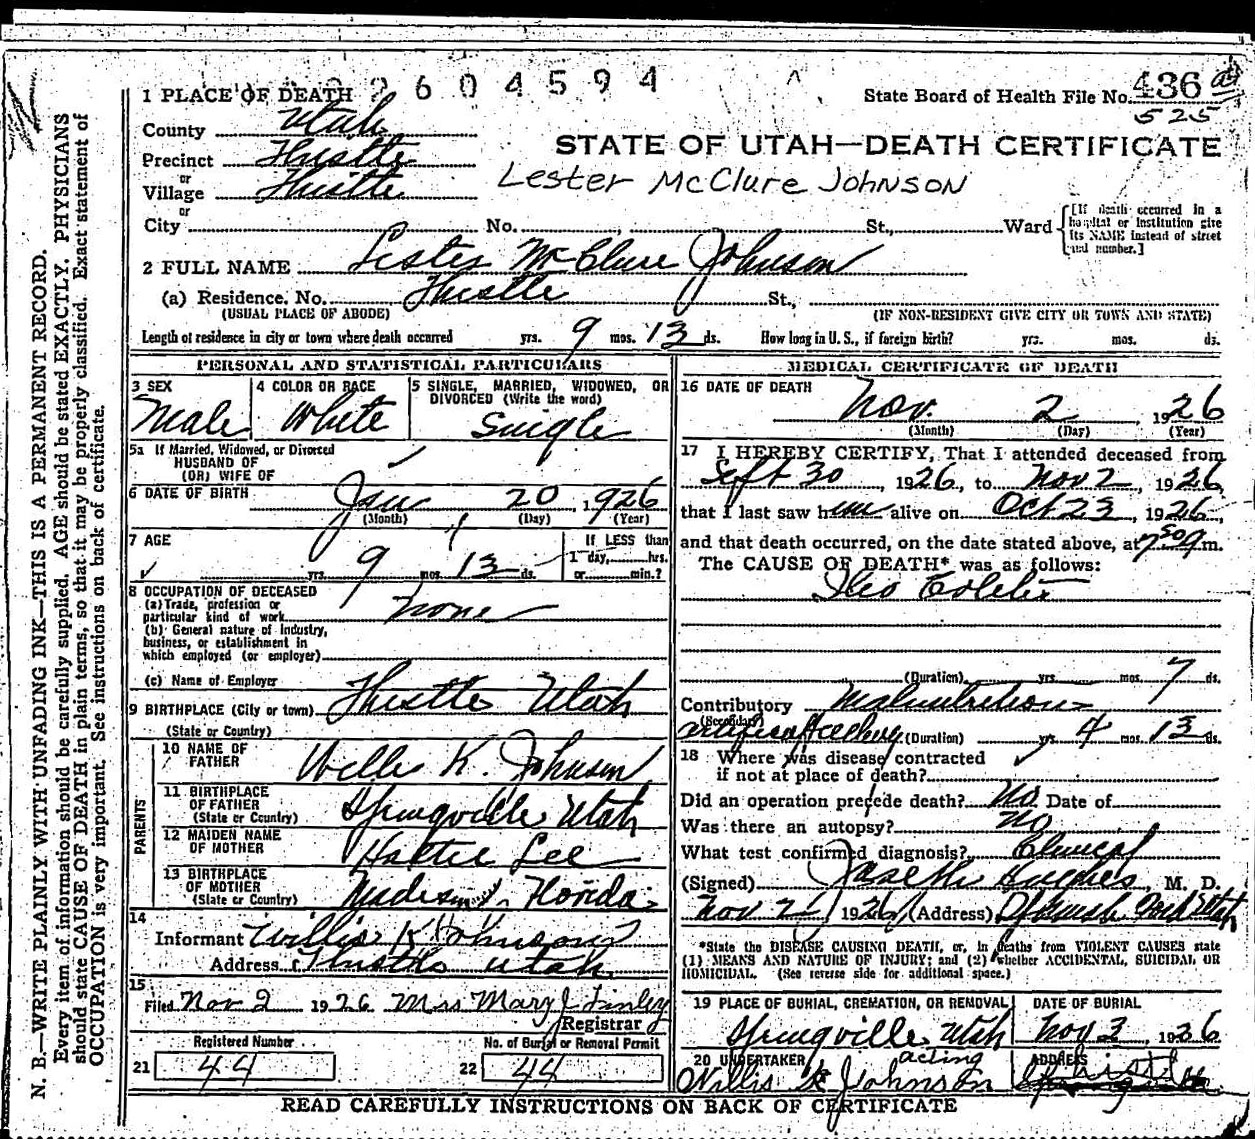 2604594
1 PLACE OF DEATH
State Board of Health File No. 436
525
County Utah
STATE OF UTAH—DEATH CERTIFICATE
Precinct Thistle
or
Village Thistle
Lester McClure Johnson
or
City No. St., Ward
[If death occurred in a hospital or institution give its NAME instead of street and number.]
2 FULL NAME Lester McClure Johnson
(a) Residence. No. Thistle St.,
(USUAL PLACE OF ABODE) (IF NON-RESIDENT GIVE CITY OR TOWN AND STATE)
Length of residence in city or town where death occurred yrs. 9 mos. 13 ds. How long in U. S., if foreign birth? yrs. mos. ds.
PERSONAL AND STATISTICAL PARTICULARS
3 SEX Male
4 COLOR OR RACE White
5 SINGLE, MARRIED, WIDOWED, OR DIVORCED (Write the word)
Single
5a If Married, Widowed, or Divorced
HUSBAND OF
(OR) WIFE OF
6 DATE OF BIRTH Jan 20 1926
(Month) (Day) (Year)
7 AGE yrs. 9 mos. 13 ds.
If LESS than 1 day, hrs. or min.?
8 OCCUPATION OF DECEASED
(a) Trade, profession or particular kind of work None
(b) General nature of industry, business, or establishment in which employed (or employer)
(c) Name of Employer
9 BIRTHPLACE (City or town) Thistle Utah
(State or Country)
PARENTS
10 NAME OF FATHER Willis K. Johnson
11 BIRTHPLACE OF FATHER (State or Country) Springville Utah
12 MAIDEN NAME OF MOTHER Hattie Lee
13 BIRTHPLACE OF MOTHER (State or Country) Florida
14
Informant Willis K Johnson
Address Thistle Utah
15
Filed Nov 2 1926 Mrs Mary J Finley
Registrar
Registered Number
21 44
No. of Burial or Removal Permit
22 44
MEDICAL CERTIFICATE OF DEATH
16 DATE OF DEATH
Nov. 2, 1926
(Month) (Day) (Year)
17 I HEREBY CERTIFY, That I attended deceased from
Sept 30 1926, to Nov 2, 1926,
that I last saw him alive on Oct 23, 1926,
and that death occurred, on the date stated above, at 7 50 a m.
The CAUSE OF DEATH* was as follows:
Ileo Colitis
(Duration) yrs. mos. 7 ds.
Contributory Malnutrition
(Secondary)
artificial feeding (Duration) yrs. 4 mos. 13 ds.
18 Where was disease contracted
if not at place of death?
Did an operation precede death? No Date of
Was there an autopsy? No
What test confirmed diagnosis? Clinical
(Signed) Joseph Hughes, M. D.
Nov 2, 1926 (Address) Spanish Fork Utah
*State the DISEASE CAUSING DEATH, or, in deaths from VIOLENT CAUSES state
(1) MEANS AND NATURE OF INJURY; and (2) whether ACCIDENTAL, SUICIDAL OR
HOMICIDAL. (See reverse side for additional space.)
19 PLACE OF BURIAL, CREMATION, OR REMOVAL
Springville Utah
DATE OF BURIAL
Nov 3, 1926
20 UNDERTAKER acting
Willis K Johnson
ADDRESS
Thistle
READ CAREFULLY INSTRUCTIONS ON BACK OF CERTIFICATE
N. B.—WRITE PLAINLY WITH UNFADING INK—THIS IS A PERMANENT RECORD.
Every item of information should be carefully supplied. AGE should be stated EXACTLY. PHYSICIANS
should state CAUSE OF DEATH in plain terms, so that it may be properly classified. Exact statement of
OCCUPATION is very important. See instructions on back of certificate.